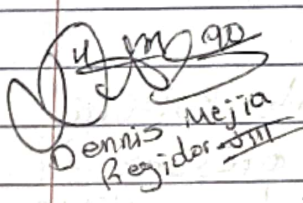 Dennis Mejia
Regidor VIII